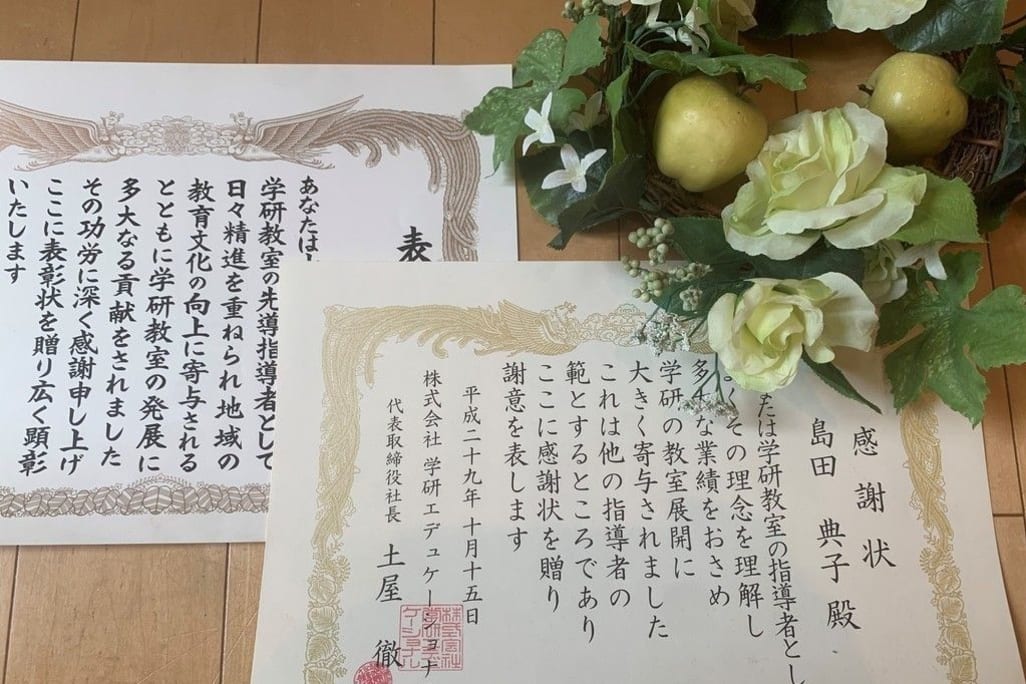 表
あなたは
学研教室の先導指導者として
日々精進を重ねられ地域の
教育文化の向上に寄与される
とともに学研教室の発展に
多大なる貢献をされました
その功労に深く感謝申し上げ
ここに表彰状を贈り広く顕彰
いたします
感謝状
島田 典子 殿
たは学研教室の指導者とし
くその理念を理解し
多大な業績をおさめ
学研の教室展開に
大きく寄与されました
これは他の指導者の
範とするところであり
ここに感謝状を贈り
謝意を表します
平成二十九年 十月十五日
株式会社 学研エデュケーショナ
代表取締役社長 土屋 徹